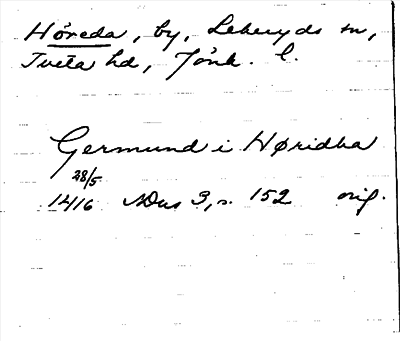 Höreda, by, Lekeryds sn,
Tveta hd, Jönk. l.
Germund i Høridha
28/5
1416 NDus 3, s. 152 orig.